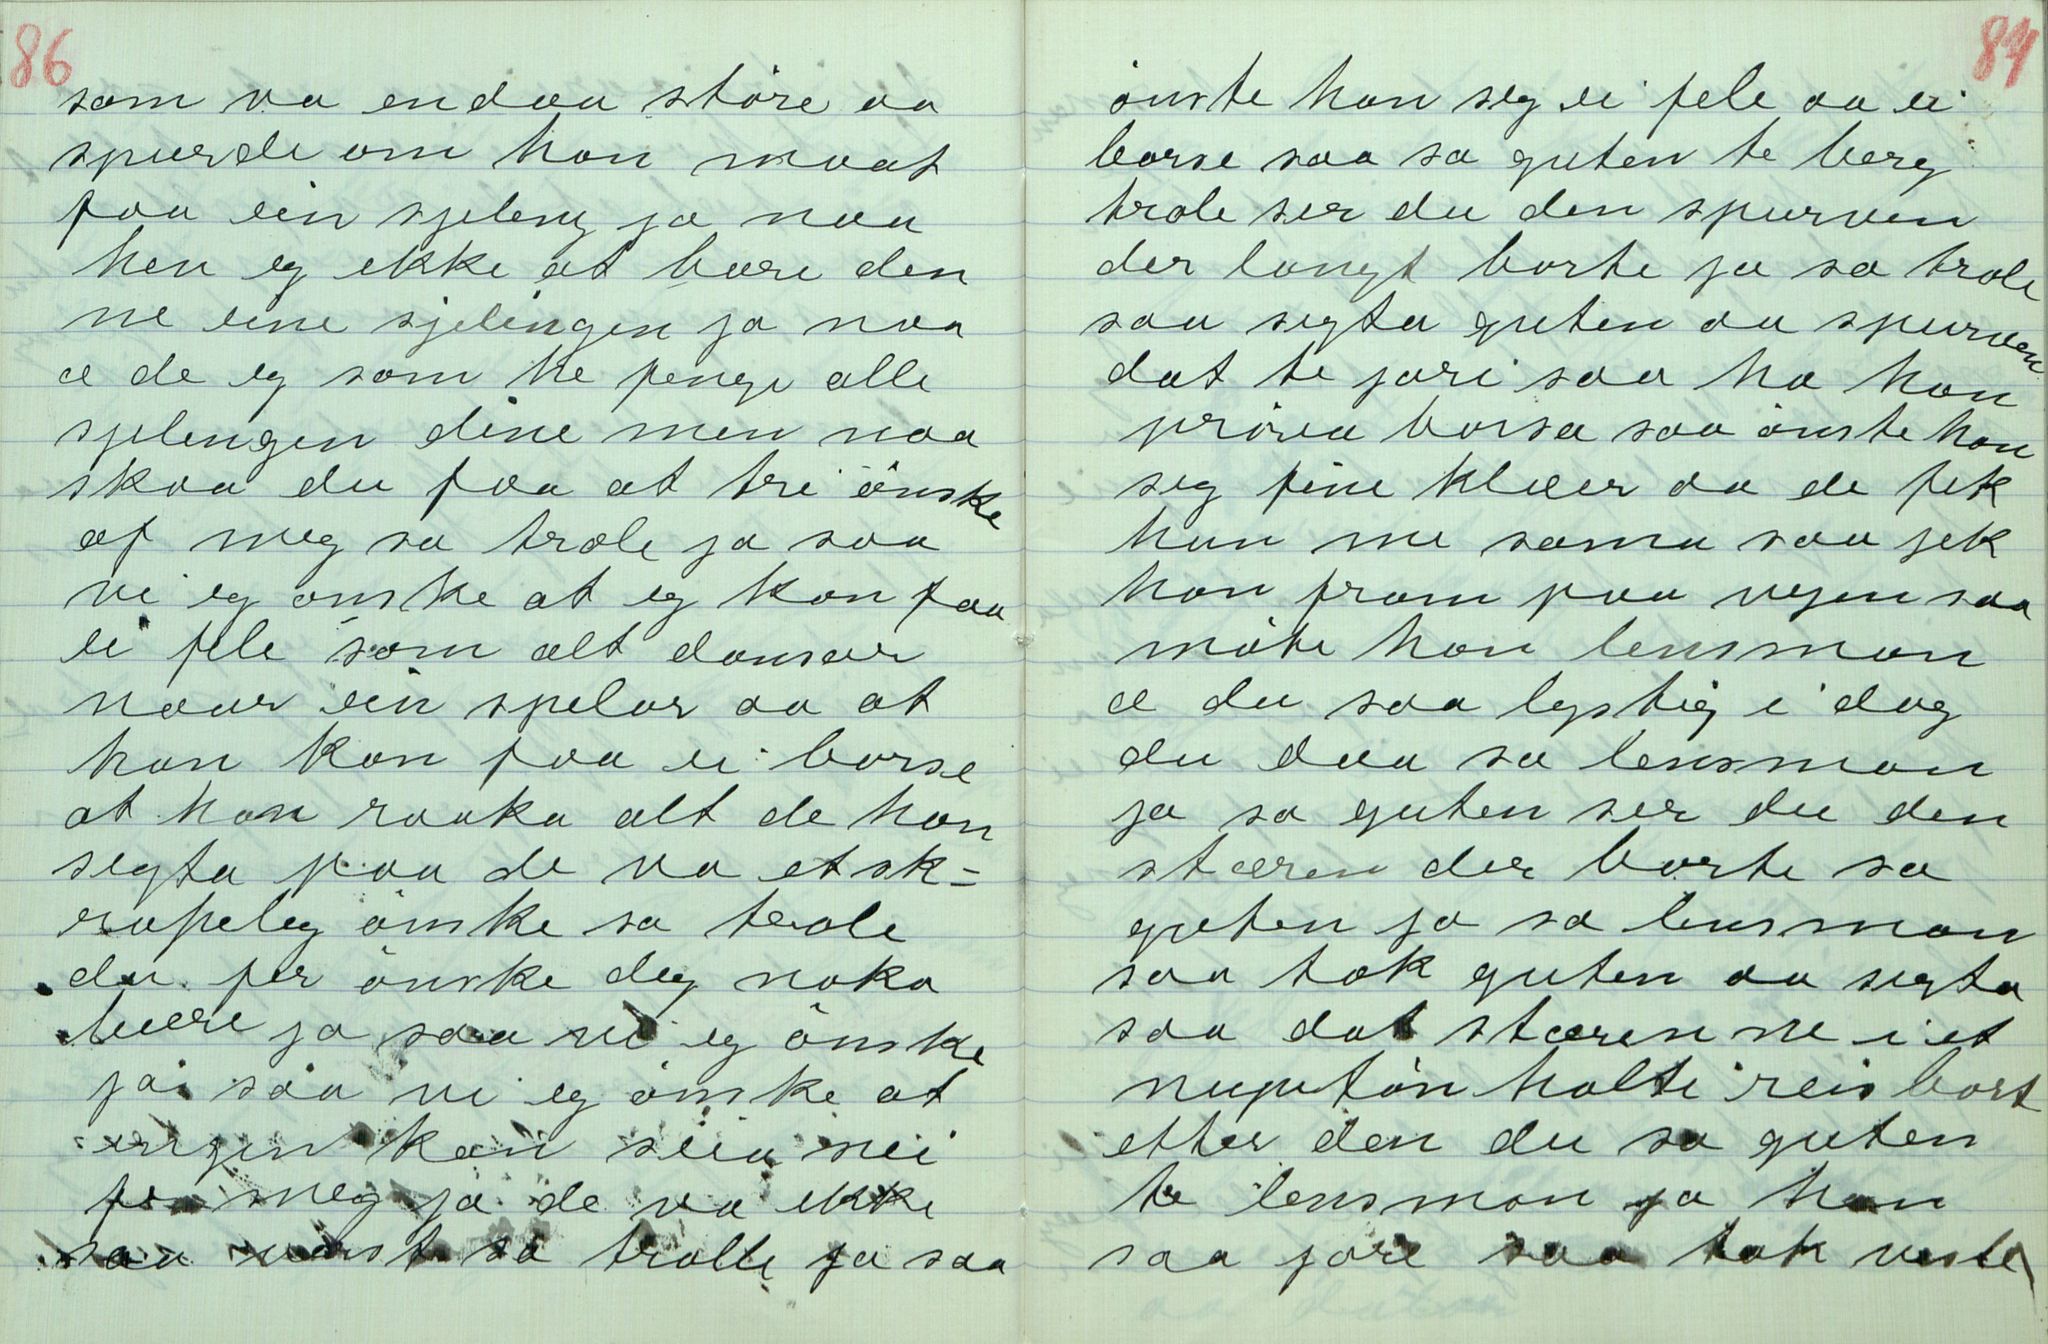 86
som va endaa störe aa
spurde om han maat
faa ein sjeleng ja naa
hen eg ekke at bære den
ne eine sjelingen ja naa
æ de eg som he penge alle
sjelengen dine men naa
skaa du faa at tri önske
af meg sa trole ja saa
vi eg önske at eg kan faa
ei fele som alt dansar
naar ein spelar aa at
han kan faa ei borse
at han raaka alt de han
segta paa de va et sk-
rapeleg önske sa trole
du fer önske deg noka
bære ja saa vi eg önske
ja saa vi eg önske at
engen kan seia nei
fo meg ja de va ekke
saa værst sa trolle ja saa
87
önste han seg ei fele aa ei
borse saa sa guten te berg
trole ser du den spurven
der langt borte ja sa trole
saa segta guten aa spurven
dat te jori saa ha han
pröva borsa saa önste han
seg fine klæer aa de fek
han me sama saa jek
han fram paa vegen saa
möte han lensman
æ du saa lystig i dag
du daa sa lensman
ja sa guten ser du den
stæren der borte sa
guten ja sa lensman
saa tok guten aa segta
saa dat stæren ne i et
nupetön holt reis bort
etter den du sa guten
te lensman ja han
saa jore saa tok vesle